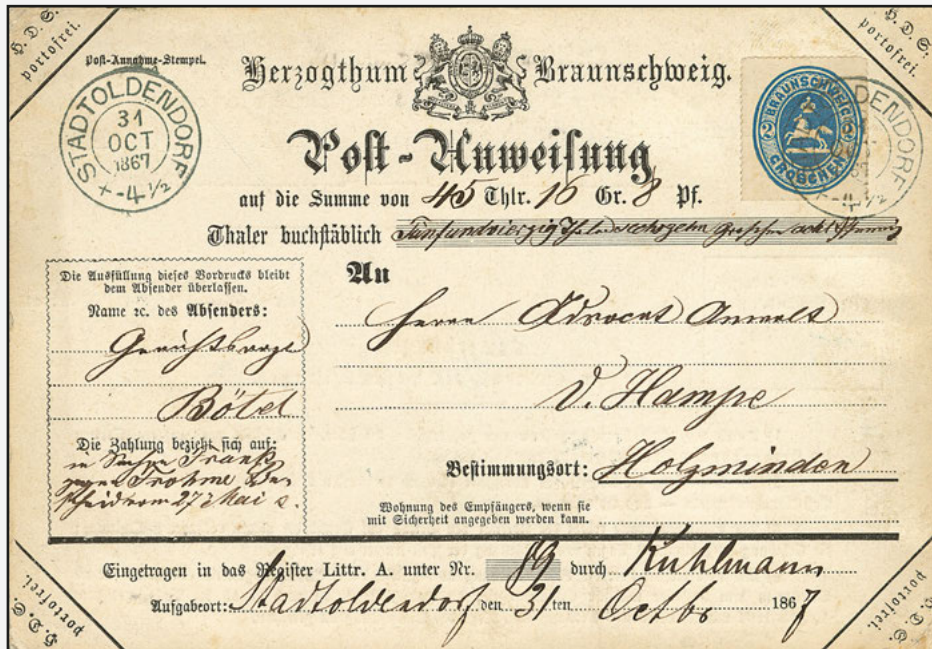 H. D. S. portofrei.
H. D. S. portofrei.
Post-Annahme-Stempel.
Herzogthum Braunschweig.
STADTOLDENDORF
31
OCT
1867
+-4½
BRAUNSCHWEIG
2 2
GROSCHEN
DENDORF
4½
Post-Anweisung
auf die Summe von 45 Thlr. 16 Gr. 8 Pf.
Thaler buchstäblich Fünfundvierzig Thaler sechszehn Groschen acht Pfennig
An
Die Ausfüllung dieses Vordrucks bleibt
dem Absender überlassen.
Name ꝛc. des Absenders:
Bötel
Die Zahlung bezieht sich auf:
in Sachen
gegen Frohme
27 Mai
Herrn Advocat Anwalt
D. Hampe
Bestimmungsort: Holzminden
Wohnung des Empfängers, wenn sie
mit Sicherheit angegeben werden kann.
Eingetragen in das Register Littr. A. unter Nr. 89 durch Kuhlmann
Aufgabeort: Stadtoldendorf den 31 ten Octbr 1867
H. D. S. portofrei.
H. D. S. portofrei.